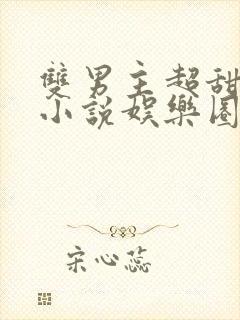 雙男主超甜
小說娛樂圈
宋心蕊